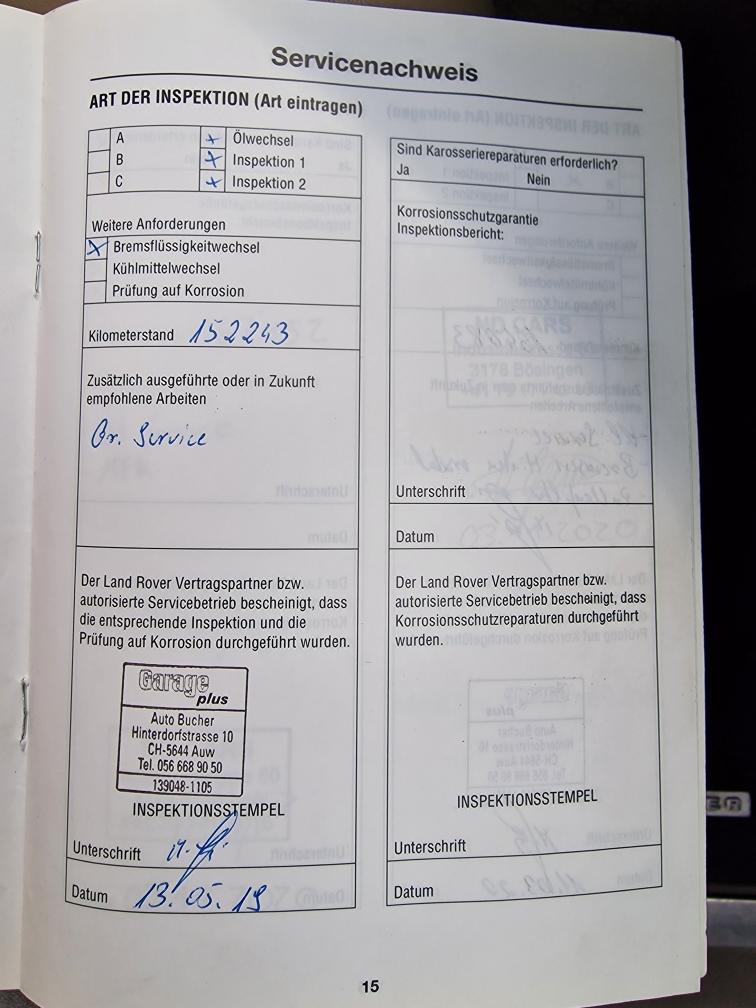 Servicenachweis
ART DER INSPEKTION (Art eintragen)
A x Ölwechsel
B x Inspektion 1
C x Inspektion 2
Weitere Anforderungen
x Bremsflüssigkeitwechsel
Kühlmittelwechsel
Prüfung auf Korrosion
Kilometerstand 152243
Zusätzlich ausgeführte oder in Zukunft
empfohlene Arbeiten
Gr. Service
Der Land Rover Vertragspartner bzw.
autorisierte Servicebetrieb bescheinigt, dass
die entsprechende Inspektion und die
Prüfung auf Korrosion durchgeführt wurden.
Garage
plus
Auto Bucher
Hinterdorfstrasse 10
CH-5644 Auw
Tel. 056 668 90 50
139048-1105
INSPEKTIONSSTEMPEL
Unterschrift
Datum 13.05.19
Sind Karosseriereparaturen erforderlich?
Ja Nein
Korrosionsschutzgarantie
Inspektionsbericht:
Unterschrift
Datum
Der Land Rover Vertragspartner bzw.
autorisierte Servicebetrieb bescheinigt, dass
Korrosionsschutzreparaturen durchgeführt
wurden.
INSPEKTIONSSTEMPEL
Unterschrift
Datum
15